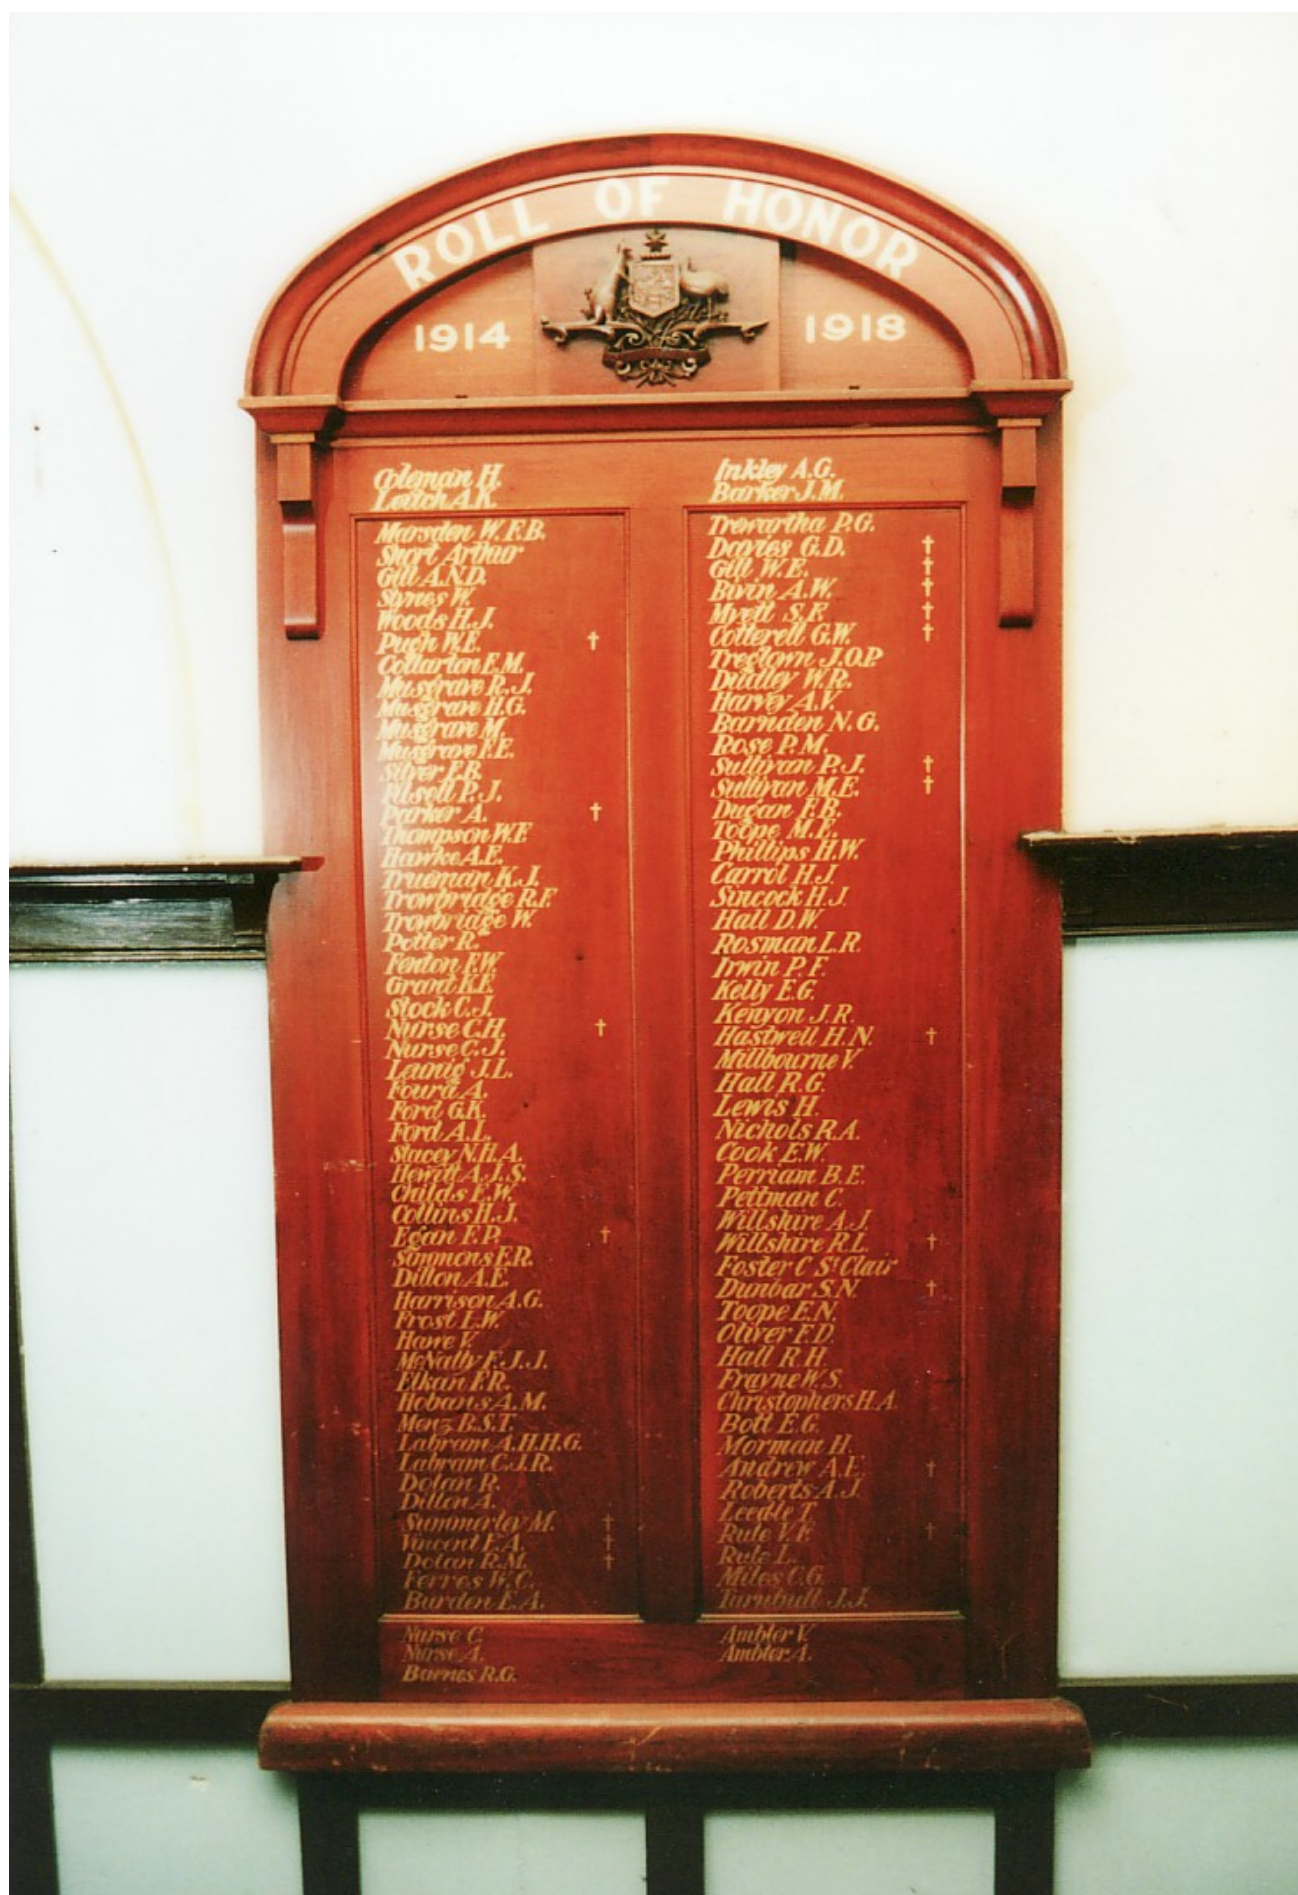 ROLL OF HONOR
1914
1918
Coleman H.
Leitch A.K.
Marsden W.F.B.
Short Arthur
Gill A.N.D.
Stynes W.
Woods H.J.
Pugh W.E. †
Collarton E.M.
Musgrave R.J.
Musgrave H.G.
Musgrave M.
Musgrave F.E.
Silver F.B.
P.J.
Parker A. †
Thompson W.F.
Hawke A.E.
Trueman K.J.
Trowbridge R.F.
Trowbridge W.
Potter R.
Fenton F.W.
Grant K.F.
Stock C.J.
Nurse C.H. †
Nurse C.J.
Leunig J.L.
Foura A.
Ford G.K.
Ford A.L.
Stacey N.H.A.
Hewitt A.J.S.
Childs E.W.
Collins H.J.
Egan F.P. †
Simmons E.R.
Dillon A.E.
Harrison A.G.
Frost L.W.
Hawe V.
McNally F.J.J.
Elkan F.R.
Hobans A.M.
Menz B.S.T.
Labram A.H.H.G.
Labram C.J.R.
Dolan R.
Dillon A.
Summerley M. †
Vincent F.A. †
Dolan R.M. †
Ferres W.C.
Burden E.A.
Nurse C.
Nurse A.
Barnes R.G.
Inkley A.G.
Barker J.M.
Trewartha P.G.
Davies G.D. †
Gill W.E. †
Bivin A.W. †
Myett S.F. †
Cotterell G.W. †
Tregtown J.O.P.
Dudley W.R.
Harvey A.V.
Barnden N.G.
Rose P.M.
Sullivan P.J. †
Sullivan M.E. †
Dugan F.B.
Toope M.E.
Phillips H.W.
Carrol H.J.
Sincock H.J.
Hall D.W.
Rosman L.R.
Irwin P.F.
Kelly E.G.
Kenyon J.R.
Hastwell H.N. †
Millbourne V.
Hall R.G.
Lewis H.
Nichols R.A.
Cook E.W.
Perriam B.E.
Pettman C.
Willshire A.J.
Willshire R.L. †
Foster C St Clair
Dunbar S.N. †
Toope E.N.
Oliver F.D.
Hall R.H.
Frayne W.S.
Christophers H.A.
Bott E.G.
Morman H.
Andrew A.E. †
Roberts A.J.
Leedle T.
Rule V.F. †
Rule L.
Miles C.G.
Turnbull J.J.
Ambler V.
Ambler A.